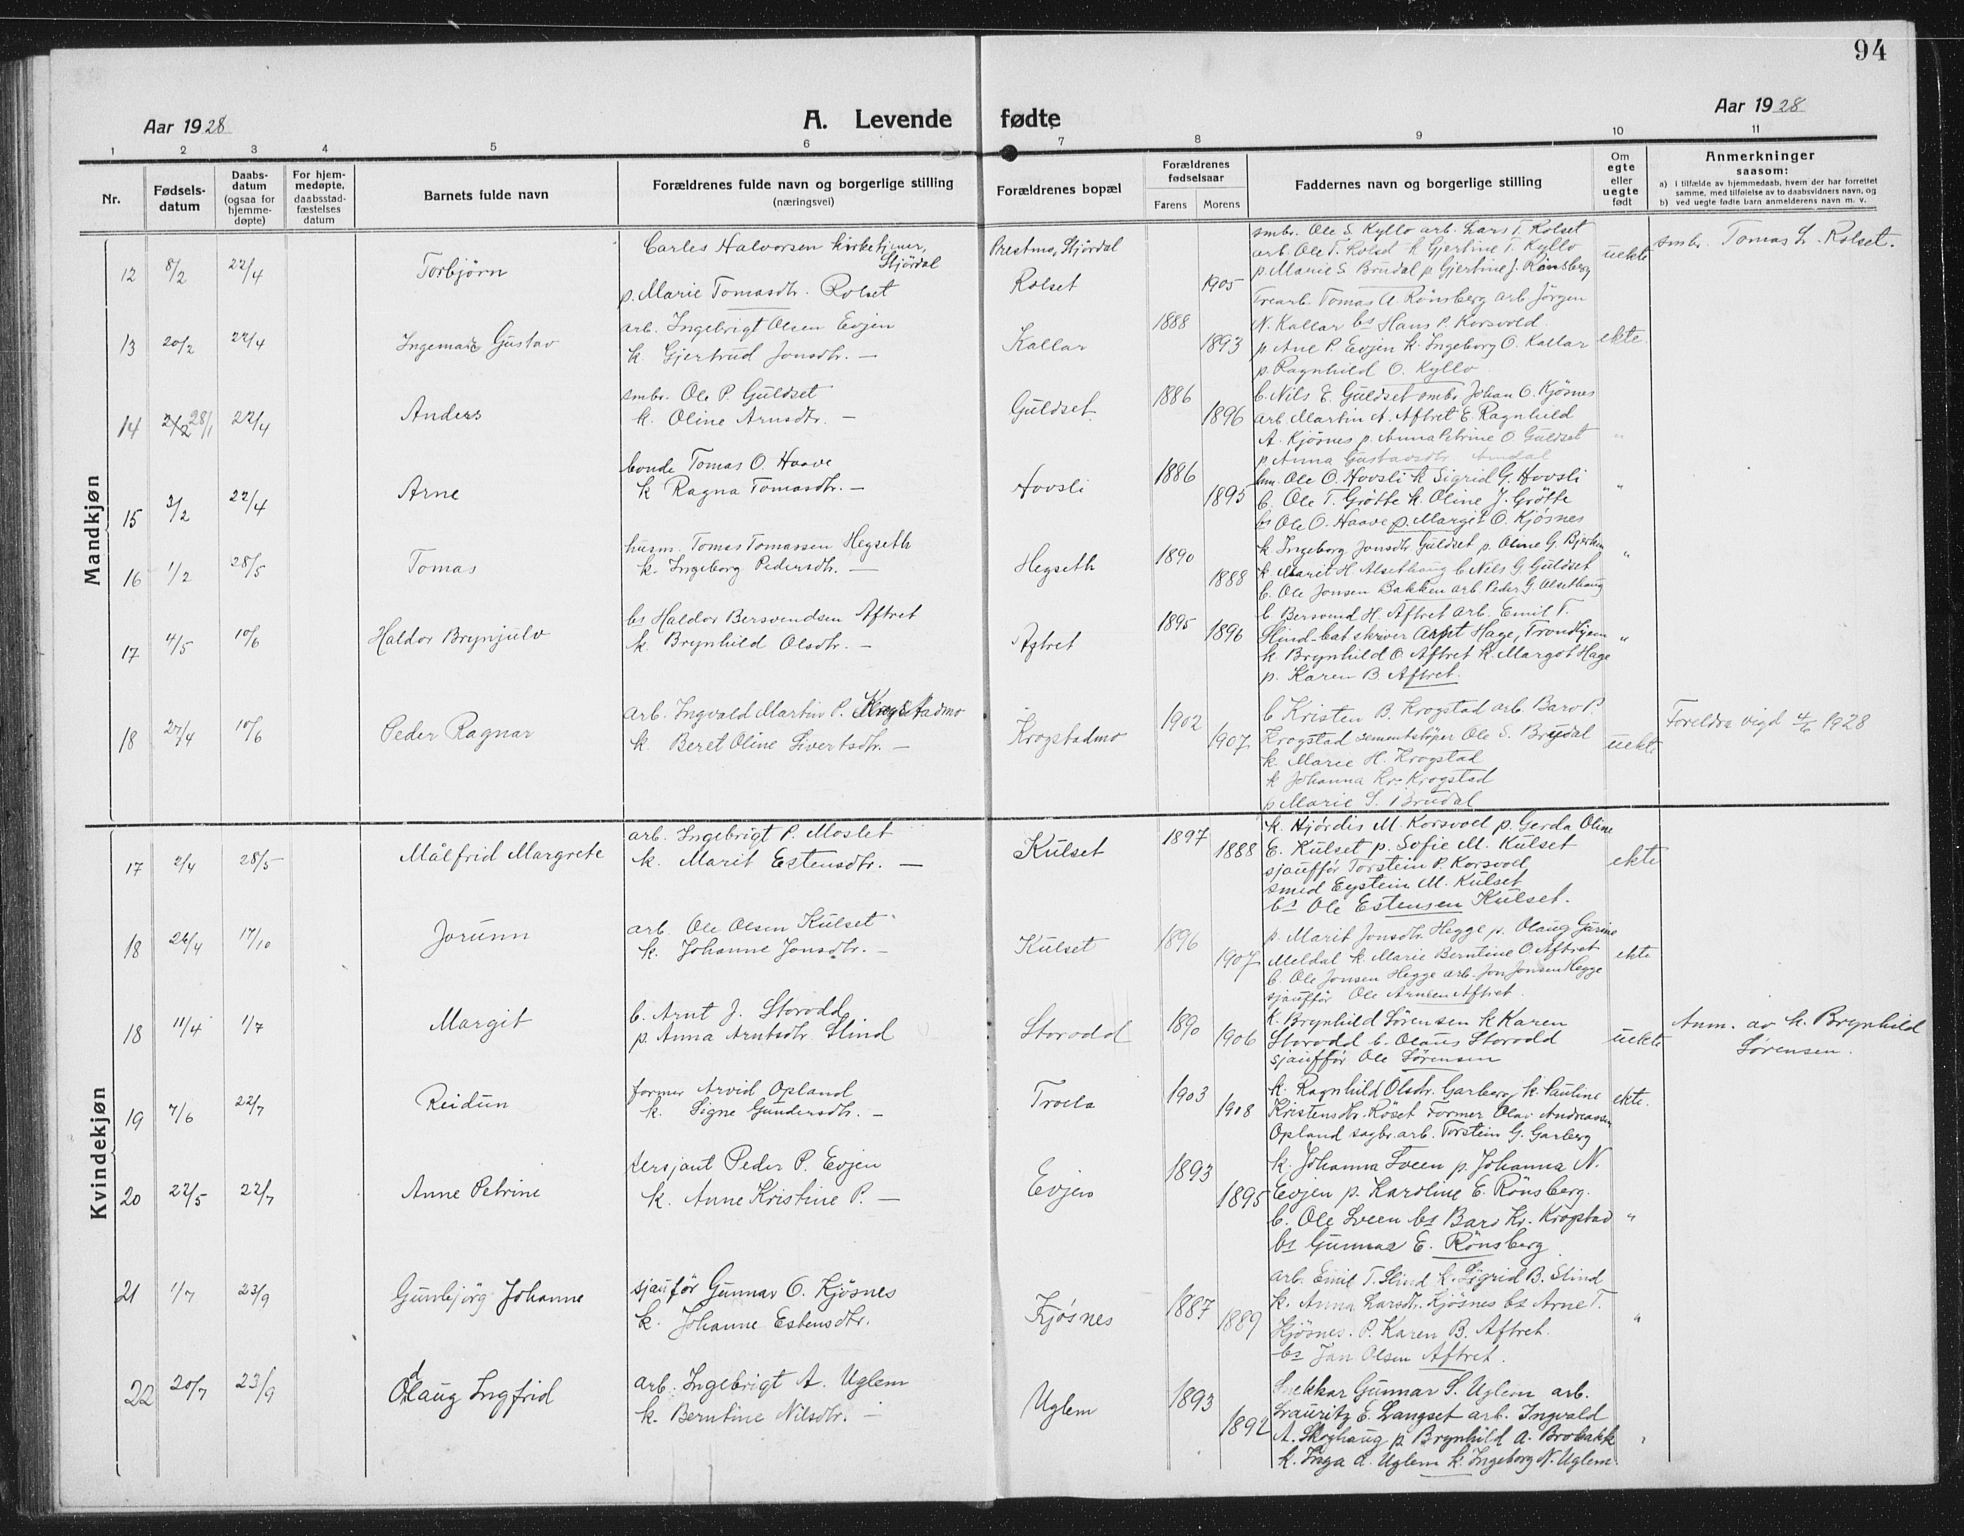 94
Aar 1928
A. Levende fødte
Aar 1928
1 2 3 4 5 6 7 8 9 10 11
Nr.
Fødsels-
datum
Daabs-
datum
(ogsaa for
hjemme-
døpte)
For hjem-
medøpte,
daabsstad-
fæstelses
datum
Barnets fulde navn
Forældrenes fulde navn og borgerlige stilling
(næringsvei)
Forældrenes bopæl
Forældrenes
fødselsaar
Farens Morens
Faddernes navn og borgerlige stilling
Om
egte
eller
uegte
født
Anmerkninger
saasom:
a) I tilfælde av hjemmedaab, hvem der har forrettet
samme, med tilføielse av to daabsvidners navn, og
b) ved uegte fødte barn anmelderens navn m. v.
Mandkjøn
12 8/2 22/4 Torbjørn
Carles Halvorsen kirketjener,
Stjørdal
p. Marie Tomasdtr. Rolset
Prestmo, Stjørdal
Rolset
1905
smbr. Ole S. Kyllo arb. Lars T. Rolset
arb. Ole T. Rolset k Gjertine T. Kyllo
p. Marie S. Brudal p. Gjertine J. Rønsberg
uekte
smbr. Tomas L. Rolset.
13 20/2 22/4 Ingemar Gustav
arb. Ingebrigt Olsen Evjen
k. Gjertrud Jonsdtr. —
Kallar
1888
1893
Trearb. Tomas A. Rønsberg arb Jörgen
N. Kallar bs Hans P. Korsvold
p. Ane P. Evjen k. Ingeborg O. Kallar
p. Ragnhild O. Kyllo
ekte
14 28/1 22/4 Anders
smbr. Ole P. Guldset
k. Oline Arnsdtr. —
Guldset
1886
1896
b. Nils E. Guldset smbr Johan O. Kjøsnes
arb. Martin A. Aftret E. Ragnhild
A. Kjøsnes p. Anna Petrine O. Guldset
p. Anna Gustavsdtr. Amdal
"
15 3/2 22/4 Arne
bonde Tomas O. Haave
k Ragna Tomasdtr. —
Hovsli
1886
1895
hm. Ole O. Hovsli k Sigrid G. Hovsli
b. Ole T. Grøtte k. Oline J. Grøtte
bs Ole O. Haave p. Margit O. Kjøsnes
"
16 1/2 28/5 Tomas
husm. Tomas Tomassen Hegseth
k. Ingeborg Pedersdtr. —
Hegseth
1890
1888
k Ingeborg Jonsdtr Guldset p. Oline G. Bjerken
k. Marit H. Alsethaug b Nils G. Guldset
b. Ole Jonsen Bakken arb. Peder G. Alsethaug
"
17 4/5 10/6 Haldor Brynjulv
bs Haldor Bersvendsen Aftret
k Brynhild Olsdtr. —
Aftret
1895
1896
b Bersvend H. Aftret arb. Emil T.
Slind bat.skriver Arnt Hage, Trondhjem
k. Brynhild O Aftret k. Margot Hage
p. Karen B. Aftret.
"
18 27/4 10/6 Peder Ragnar
arb. Ingvald Martin P. Krogstadmo
k. Beret Oline Sivertsdtr. —
Krogstadmo
1902
1907
b Kristen B. Krogstad arb Baro P.
Krogstad sementstøper Ole S. Brudal
k. Marie H. Krogstad
k Johanna Kr. Krogstad
p Marie S. Brudal
uekte
Foreldra vigd 4/6 1928
Kvindekjøn
17 2/4 28/5 Målfrid Margrete
arb. Ingebrigt P. Moslet
k. Marit Estensdtr. —
Kulset
1897
1888
k. Hjørdis M. Korsvoll p. Gerda Oline
E. Kulset p. Sofie M. Kulset
sjauffør Torstein P. Korsvoll
smed Eystein M. Kulset
bs Ole Estensen Kulset.
ekte
18 26/4 17/10 Jorunn
arb. Ole Olsen Kulset
k. Johanne Jonsdtr. —
Kulset
1896
1907
p. Marit Jonsdtr. Hegge p. Olaug Gurine
Meldal k Marie Berntine O. Aftret
b. Ole Jonsen Hegge arb. Jon Jonsen Hegge
sjauffør Ole Arnesen Aftret.
ekte
18 11/4 1/7 Margit
b. Arnt J. Storodd
p. Anna Arntsdtr. Slind
Storodd
1890
1906
k. Brynhild Sørensen k Karen
Storodd b. Olaus Storodd
sjauffør Ole Sørensen
uekte
Anm. av k. Brynhild
Sørensen.
19 7/6 22/7 Reidun
former Arvid Opland
k. Signe Gundersdtr. —
Troela
1903
1908
k. Ragnhild Olsdtr. Garberg k. Pauline
Kristensdtr. Røset Former Olav Andreassen
Opland sagbr.arb. Torstein G. Garberg
ekte.
20 22/5 22/7 Anne Petrine
sersjant Peder P. Evjen
k. Anne Kristine P. —
Evjen
1893
1895
k. Johanna Sveen p. Johanna N.
Evjen p. Karoline E. Rønsberg.
b. Ole Sveen bs Baro Kr. Krogstad
bs Gunnar E. Rønsberg
"
21 1/7 23/9 Gunbjørg Johanne
sjauför Gunnar O. Kjøsnes
k. Johanne Estensdtr.
Kjøsnes
1887
1889
arb. Emil T. Slind k. Sigrid B. Slind
k. Anna Larsdtr. Kjøsnes bs Arne T.
Kjøsnes. P. Karen B. Aftret.
bs Jan Olsen Aftret.
"
22 20/7 23/9 Odlaug Ingfrid
arb. Ingebrigt A. Uglem
k. Berntine Nilsdtr. —
Uglem
1893
1892
Snekkar Gunnar S. Uglem arb.
Lauritz E. Langset arb. Ingvald
A. Skoghaug p Brynhild A. Brobakk
k. Inga A. Uglem k. Ingeborg N. Uglem.